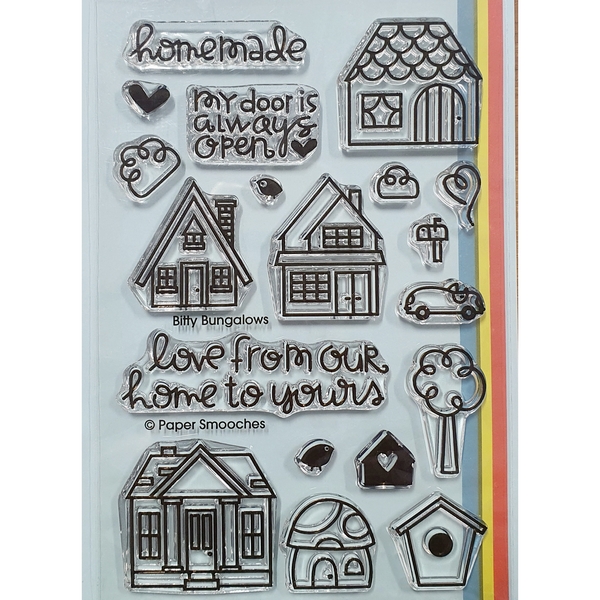 homemade
my door is
always
open
Bitty Bungalows
love from our
home to yours
© Paper Smooches